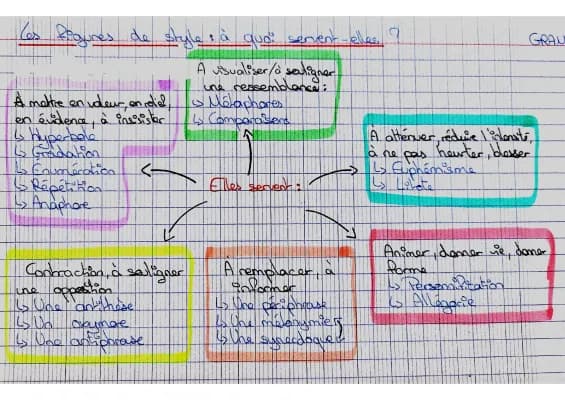 Les figures de style : à quoi servent-elles ?
GRAV
À visualiser/à souligner
une ressemblance :
↳ Métaphores
↳ Comparaisons
À mettre en valeur, en relief,
en évidence, à insister
↳ Hyperbole
↳ Gradation
↳ Enumération
↳ Répétition
↳ Anaphore
A atténuer, réduire l'intensité,
à ne pas heurter, blesser
↳ Euphémisme
↳ Litote
Elles servent :
Contraction, à souligner
une opposition
↳ Une antithèse
↳ Un oxymore
↳ Une antiphrase
À remplacer, à
informer
↳ Une périphrase
↳ Une métonymie
↳ Une synecdoque
Animer, donner vie, donner
forme
↳ Personnification
↳ Allégorie